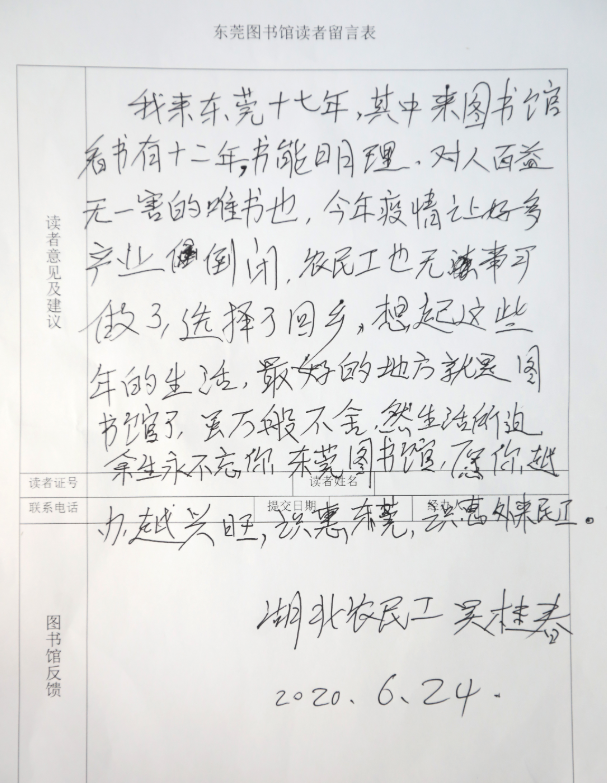 东莞图书馆读者留言表
我来东莞十七年,其中来图书馆
看书有十二年,书能明理、对人百益
无一害的唯书也,今年疫情让好多
产业倒闭,农民工也无事可
做了,选择了回乡。想起这些
年的生活,最好的地方就是图
书馆了,虽万般不舍,然生活所迫
余生永不忘你,东莞图书馆,愿你越
办越兴旺,识惠东莞,识惠外来民工。
湖北农民工 吴桂春
2020.6.24.
读者意见及建议
读者证号
读者姓名
联系电话
提交日期
经办人
图书馆反馈